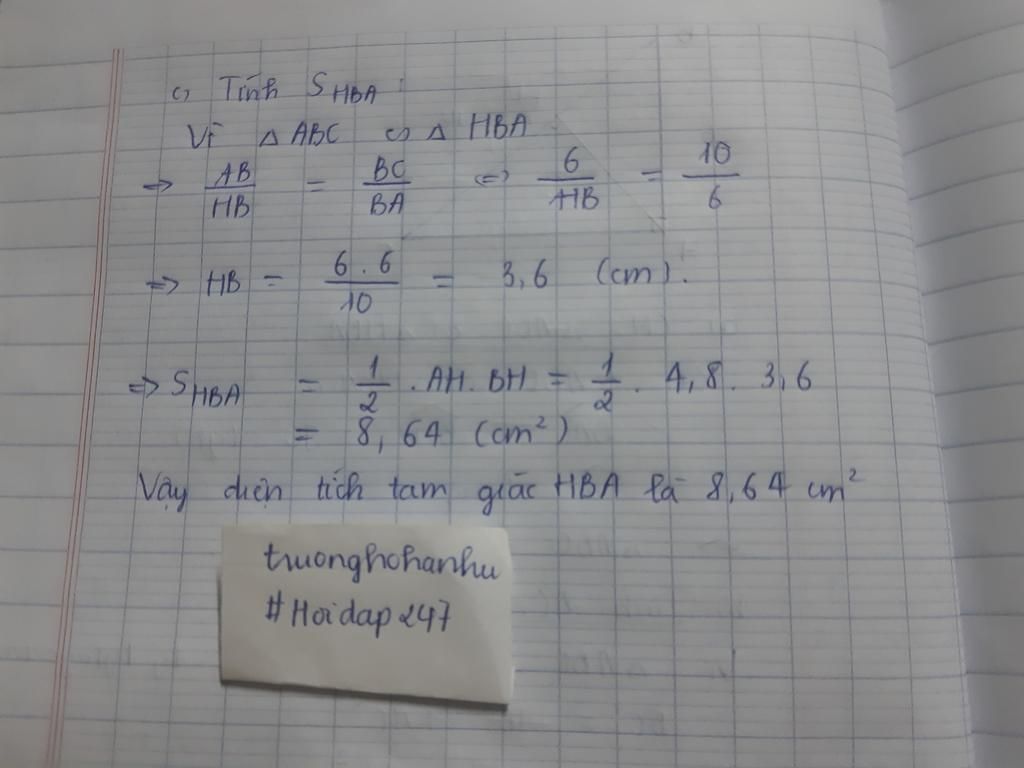 c, Tính S_HBA :
Vì △ ABC ∽ △ HBA
=> AB/HB = BC/BA <=> 6/HB = 10/6
=> HB = 6.6/10 = 3,6 (cm).
=> S_HBA = 1/2 . AH. BH = 1/2 . 4,8. 3,6
= 8,64 (cm²)
Vậy diện tích tam giác HBA là 8,64 cm²
truonghohanhu
#Hoidap247